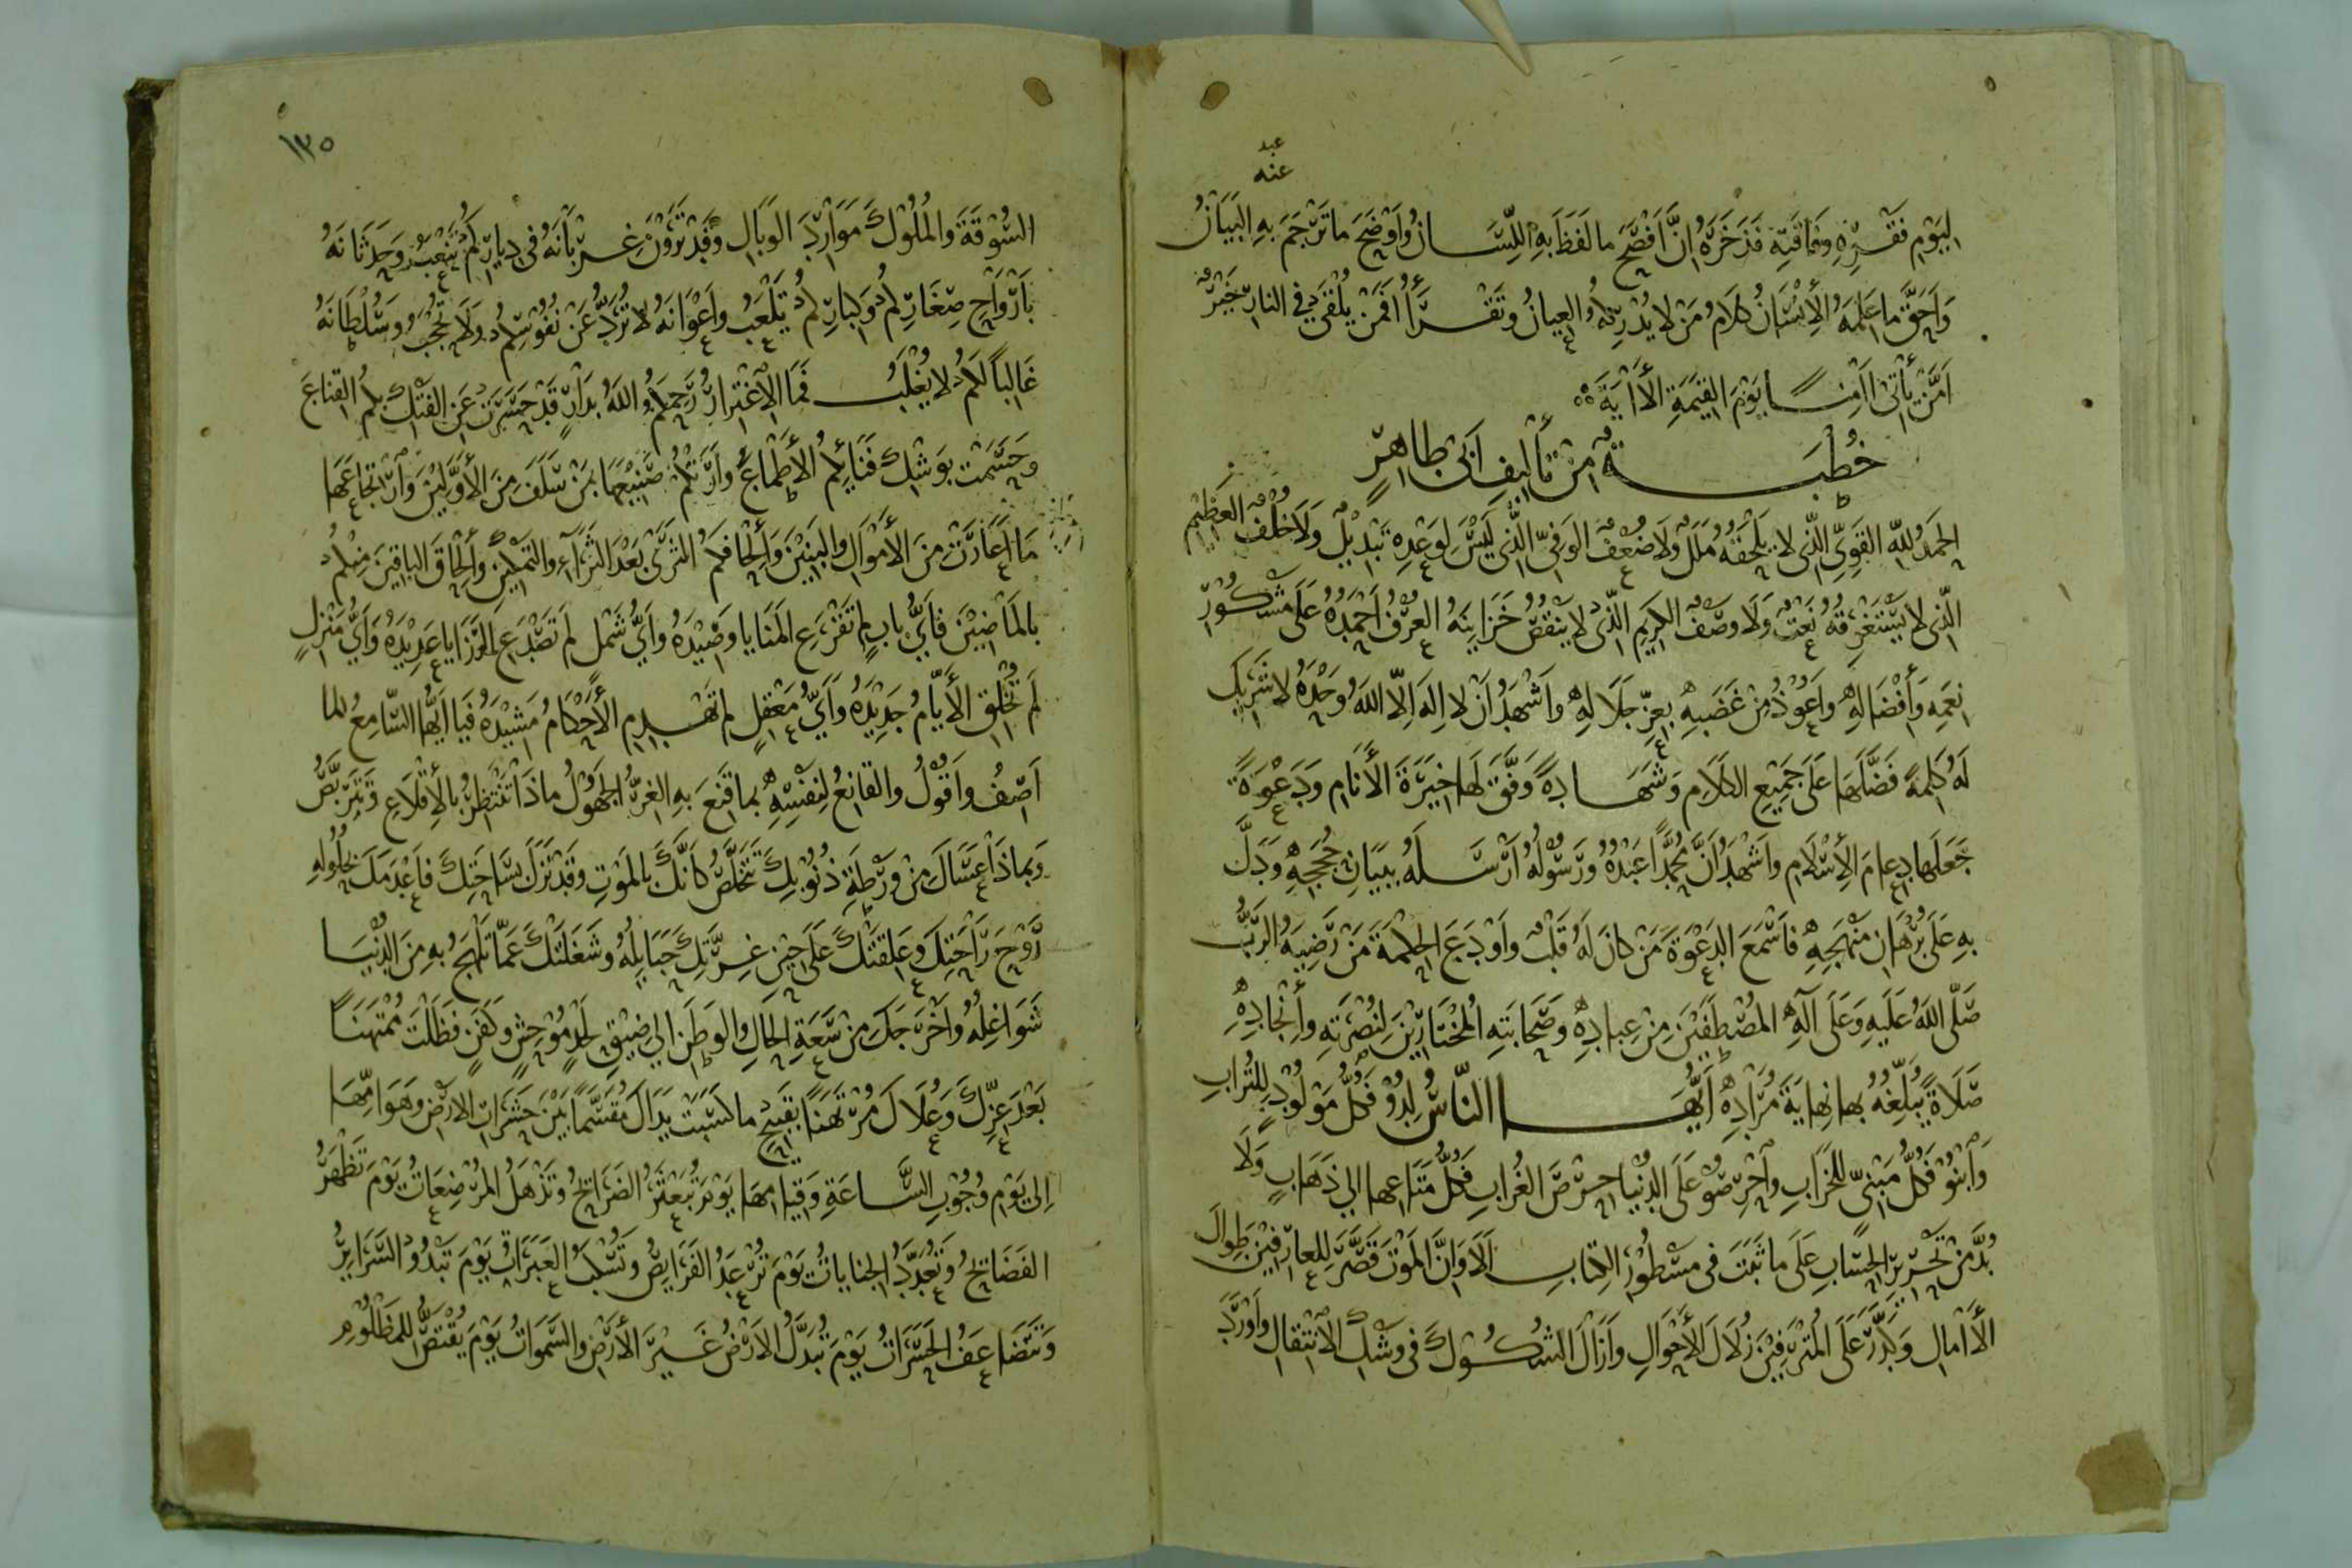 عبد
عنه
لِيَوْمِ فَقْرِهِ وَفَاقَتِهِ فَذَخَرَهُ اِنَّ اَفْصَحَ ما لَفَظَ بِهِ اللِّسَانُ وَاَوْضَحَ ما تَرْجَمَ بِهِ البَيَانُ
وَاَحَقَّ ما عَلِمَهُ الأِنْسَانُ كَلَامُ مَنْ لا يُدْرِكُهُ العِيانُ وَتَقْرَأُ اَفَمَنْ يُلْقَى فِي النارِ خَيْرٌ
اَمَّنْ يَأْتى اٰمِنًا يَوْمَ القِيٰمَةِ الأٰيَةَ
خُطْبَةٌ مِنْ تَأْلِيفِ اَبى طَاهِرٍ
الحَمْدُ لِلّٰهِ القَوِيِّ الَّذى لا يَلْحَقُهُ مَلَلٌ وَلَا ضُعْفٌ الوَفِىِّ الَّذى لَيْسَ لِوَعْدِهِ تَبْدِيْلٌ وَلَا خُلْفٌ العَظِيْمِ
الَّذى لا يَسْتَغْرِقُهُ نَعْتٌ وَلَا وَصْفٌ الكَرِيمِ الَّذى لا يَنْقُصُ خَزَايِنَهُ العُرْفُ اَحْمَدُهُ عَلَى مَشْكُوْرِ
نِعَمِهِ وَأِفْضَالِهِ وَاَعُوْذُ مِنْ غَضَبِهِ بِعِزِّ جَلَالِهِ وَاَشْهَدُ اَنْ لا اِلٰهَ اِلّا اللّٰهُ وَحْدَهُ لا شَرِيْكَ
لَهُ كَلِمَةً فَضَّلَهَا عَلَى جَمِيْعِ الكَلَامِ وَشَهَادَةً وَفَّقَ لَهَا خِيَرَةَ الأَنَامِ وَدَعْوَةً
جَعَلَها دِعامَ الأِسْلَامِ وَاَشْهَدُ اَنَّ مُحَمَّدًا عَبْدُهُ وَرَسُوْلُهُ اَرْسَلَهُ بِبَيَانِ حُجَجِهِ وَدَلَّ
بِهِ عَلَى بُرْهَانِ مَنْهَجِهِ فَاَسْمَعَ الدَعْوَةَ مَنْ كانَ لَهُ قَلْبٌ وَاَوْدَعَ الحِكْمَةَ مَنْ رَضِيَهُ الرَبُّ
صَلّٰى اللّٰهُ عَلَيْهِ وَعَلَى آلِهِ المُصْطَفَيْنَ مِنْ عِبادِهِ وَصَحَابَتِهِ الْمُخْتَارِيْنَ لِنُصْرَتِهِ وَأِنْجَادِهِ
صَلَاةً يُبَلِّغُهُ بها نِهايَةَ مُرَادِهِ اَيُّهَا النّاسُ لِدُوْ فَكُلُّ مَوْلُوْدٍ لِلتُرَابِ
وَابْنُوْ فَكُلُّ مَبْنِىٍّ لِلخَرَابِ وَاحْرِصُوْ عَلَى الدُنْيا حِرْصَ الغُرَابِ فَكُلُّ مَتَاعِها اِلى ذَهَابٍ وَلَا
بُدَّ مِنْ تَحْرِيْرِ الحِسَابِ عَلَى ما ثَبَتَ فى مَسْطُوْرِ الكِتَابِ اَلَا وَاِنَّ المَوْتَ قَصَّرَ لِلعارِفِيْنَ طِوَالَ
الأٰمَالِ وَكَدَّرَ عَلَى المُتْرَفِيْنَ زُلَالَ الأَحْوَالِ وَاَزَالَ الشُكُوْكَ فى وَشْكِ الأِنْتِقَالِ وَاَوْرَدَ
١٣٥
السُوْقَةَ وَالمُلُوْكَ مَوَارِدَ الوَبَالِ وَقَدْ تَرَوْنَ غِرْبَانَهُ فى دِيارِكُمْ تَنْعَبُ وَحَدَثَانَهُ
بِاَرْوَاحِ صِغَارِكُمْ وَكِبَارِكُمْ يَلْعَبُ وَاَعْوَانَهُ لا تُرَدُّ عَنْ نُفُوْسِكُمْ وَلَا تُحْجَبُ وَسُلْطَانَهُ
غَالِبًا لَكُمْ لا يُغْلَبُ فَمَا الأِغْتِرَارُ رَحِمَكُمُ اللّٰهُ بِدَارٍ قَدْ حَسَرَتْ عَنِ الفَتْكِ بِكُمُ القِناعَ
وَحَسَمَتْ بِوَشْكِ فَنَائِكُمُ الأَطْمَاعَ وَاَرَتْكُمْ صَنِيْعَهَا بِمَنْ سَلَفَ مِنَ الأَوَّلِيْنَ وَارْتِجَاعَهَا
مَا اَعَارَتْ مِنَ الأَمْوَالِ وَالبَنِيْنَ وَأِلْحَافَهُمُ الثَرٰى بَعْدَ الثَرَآءِ وَالتَمْكِيْنِ وَأِلْحَاقَ البَاقِيْنَ مِنْكُمْ
بِالمَاضِيْنَ فَاَيُّ بابٍ لَمْ تَقْرَعِ المَنَايا وَصِيْدَهُ وَاَيُّ شَمْلٍ لَمْ تَصْدَعِ الرَزَايا عَدِيْدَهُ وَاَيُّ مَنْزِلٍ
لَمْ تُخْلِقِ الأَيَّامُ جَدِيْدَهُ وَاَيُّ مَعْقِلٍ لَمْ تَهْدِمِ الأَحْكَامُ مَشِيْدَهُ فَيا اَيُّهَا السّامِعُ لِما
اَصِفُ وَاَقُوْلُ وَالقانِعُ لِنَفْسِهِ بِما قَنِعَ بِهِ الغِرُّ الجَهُوْلُ ماذَا تَنْتَظِرُ بِالأِقْلَاعِ وَتَتَرَبَّصُ
وَبِماذَا عَسَاكَ مِنْ وَرْطَةِ ذُنُوْبِكَ تَتَخَلَّصُ كَاَنَّكَ بِالمَوْتِ وَقَدْ نَزَلَ بِسَاحَتِكَ فَاَعْدَمَكَ بِحُلُوْلِهِ
رَوْحَ رَاحَتِكَ وَعَلِقَتْكَ عَلَى حِيْنِ غِرَّتِكَ حَبَايِلُهُ وَشَغَلَتْكَ عَمّا تَلْهَجُ بِهِ مِنَ الدُنْيَا
شَوَاغِلُهُ وَاَخْرَجَكَ مِنْ سَعَةِ الحَالِ وَالوَطَنِ اِلى ضِيْقِ لَحْدٍ مُوْحِشٍ وَكَفَنٍ فَظَلْتَ مُمْتَهَنًا
بَعْدَ عِزِّكَ وَعُلَاكَ مُرْتَهَنًا بِقَبِيْحِ ما كَسَبَتْ يَدَاكَ مُقَسَّمًا بَيْنَ حَشَرَاتِ الارْضِ وَهَوَامِّهَا
اِلى يَوْمِ وُجُوْبِ السَّاعَةِ وَقِيَامِهَا يَوْمَ تُبَعْثَرُ الضَرَائِحُ وَتَذْهَلُ المُرْضِعَاتُ يَوْمَ تَظْهَرُ
الفَضَائِحُ وَتُعَدَّدُ الجِناياتُ يَوْمَ تُرْعَدُ الفَرَايِصُ وَتُسْكَبُ العَبَرَاتُ يَوْمَ تَبْدُو السَّرَايِرُ
وَتَتَضَاعَفُ الحَسَرَاتُ يَوْمَ تُبَدَّلُ الارْضُ غَيْرَ الأَرْضِ وَالسَّمٰوَاتُ يَوْمَ يُقْتَصُّ لِلمَظْلُوْمِ